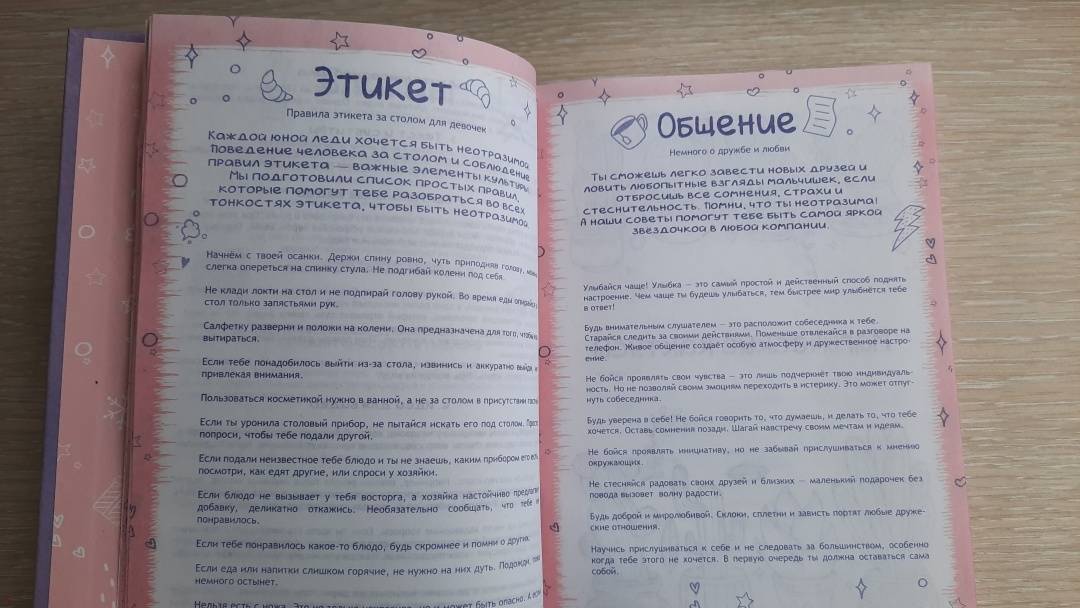 Этикет
Правила этикета за столом для девочек
Каждой юной леди хочется быть неотразимой.
Поведение человека за столом и соблюдение
правил этикета — важные элементы культуры.
Мы подготовили список простых правил,
которые помогут тебе разобраться во всех
тонкостях этикета, чтобы быть неотразимой.
Начнём с твоей осанки. Держи спину ровно, чуть приподняв голову,
слегка опереться на спинку стула. Не подгибай колени под себя.
Не клади локти на стол и не подпирай голову рукой. Во время еды
стол только запястьями рук.
Салфетку разверни и положи на колени. Она предназначена для того,
вытираться.
Если тебе понадобилось выйти из-за стола, извинись и аккуратно выйди, н
привлекая внимания.
Пользоваться косметикой нужно в ванной, а не за столом в присутствии
Если ты уронила столовый прибор, не пытайся искать его под столом.
попроси, чтобы тебе подали другой.
Если подали неизвестное тебе блюдо и ты не знаешь, каким прибором его
посмотри, как едят другие, или спроси у хозяйки.
Если блюдо не вызывает у тебя восторга, а хозяйка настойчиво
добавку, деликатно откажись. Необязательно сообщать, что тебе
понравилось.
Если тебе понравилось какое-то блюдо, будь скромнее и помни о других.
Если еда или напитки слишком горячие, не нужно на них дуть. Подожди,
немного остынет.
Нельзя есть с ножа. Это не только но и может быть опасно. А
Общение
Немного о дружбе и любви
Ты сможешь легко завести новых друзей и
ловить любопытные взгляды мальчишек, если
отбросишь все сомнения, страхи и
стеснительность. Помни, что ты неотразима!
А наши советы помогут тебе быть самой яркой
звёздочкой в любой компании.
Улыбайся чаще! Улыбка — это самый простой и действенный способ поднять
настроение. Чем чаще ты будешь улыбаться, тем быстрее мир улыбнётся тебе
в ответ!
Будь внимательным слушателем — это расположит собеседника к тебе.
Старайся следить за своими действиями. Поменьше отвлекайся в разговоре на
телефон. Живое общение создаёт особую атмосферу и дружественное настро-
ение.
Не бойся проявлять свои чувства — это лишь подчеркнёт твою индивидуаль-
ность. Но не позволяй своим эмоциям переходить в истерику. Это может отпуг-
нуть собеседника.
Будь уверена в себе! Не бойся говорить то, что думаешь, и делать то, что тебе
хочется. Оставь сомнения позади. Шагай навстречу своим мечтам и идеям.
Не бойся проявлять инициативу, но не забывай прислушиваться к мнению
окружающих.
Не стесняйся радовать своих друзей и близких — маленький подарочек без
повода вызовет волну радости.
Будь доброй и миролюбивой. Склоки, сплетни и зависть портят любые друже-
ские отношения.
Научись прислушиваться к себе и не следовать за большинством, особенно
когда тебе этого не хочется. В первую очередь ты должна оставаться сама
собой.